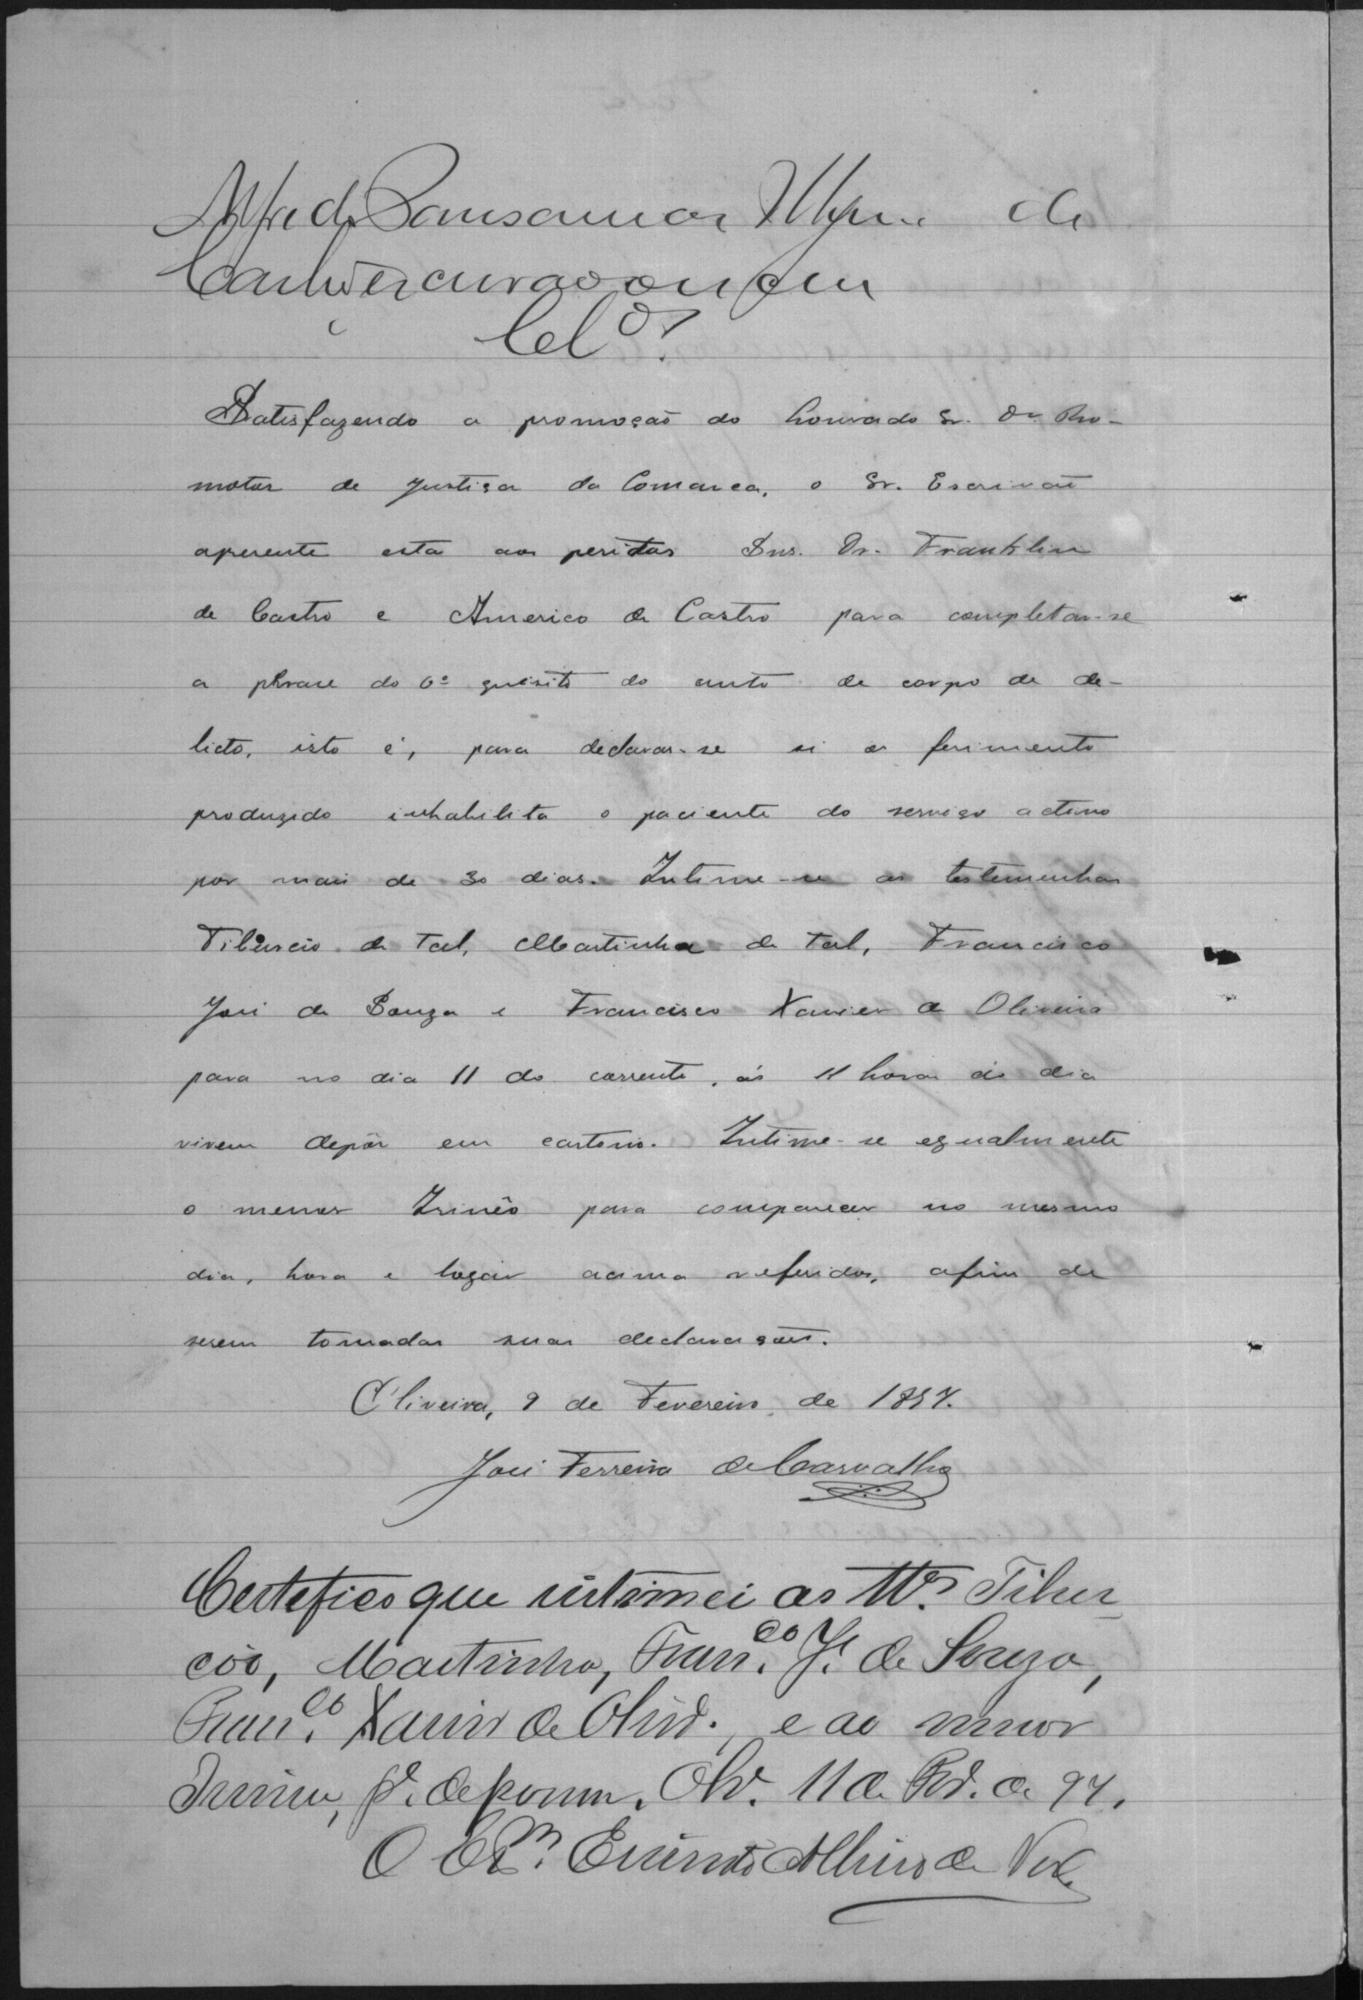 de
Cl.os
Satisfazendo a promoção do honrado Sr. Dr. Pro-
motor de Justiça da Comarca, o Sr. Escrivão
apresente esta aos peritos Snrs. Dr. Franklin
de Castro e Americo de Castro para completar-se
a phrase do 6º quisito do auto de corpo de de-
licto, isto é, para declarar-se si o ferimento
produzido inhabilita o paciente do serviço activo
por mais de 30 dias. Intime-se as testemunhas
Tiburcio de Tal, Martinho de Tal, Francisco
José de Souza e Francisco Xavier de Oliveira
para no dia 11 do corrente, ás 11 horas do dia
virem depôr em cartorio. Intime-se egualmente
o menor Irinêo para comparecer no mesmo
dia, hora e logar acima referidos, afim de
serem tomadas suas declarações.
Oliveira, 9 de Fevereiro de 1897.
José Ferreira de Carvalho
Certefico que intimei as tt.as Tibur-
cio, Martinho, Fran.co J.e de Souza,
Fran.co Xavier de Oliv.ra, e ao menor
Irineu, p.a deporem. Oliv.ra 11 de Fev. de 97.
O Es.m